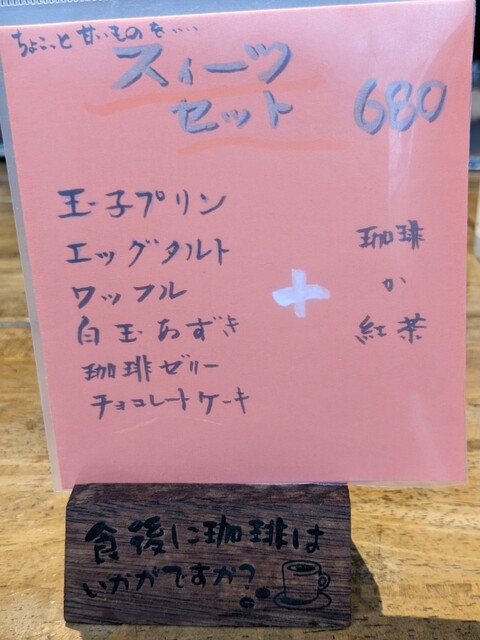 ちょこっと甘いものを‥‥
スィーツ
セット 680
玉子プリン
エッグタルト
ワッフル
白玉あずき
珈琲ゼリー
チョコレートケーキ
+
珈琲
か
紅茶
食後に珈琲は
いかがですか?